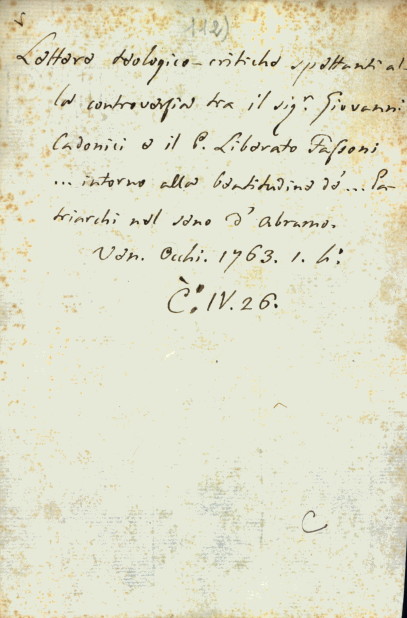 5
112)
Lettere teologico-critiche spettanti al-
la controversia tra il sig.r Giovanni
Cadonici e il P. Liberato Fassoni
... intorno alla beatitudine de' ... Pa-
triarchi nel seno d'Abramo.
Ven. Occhi. 1763. 1. h.o
C.o IV. 26.
C